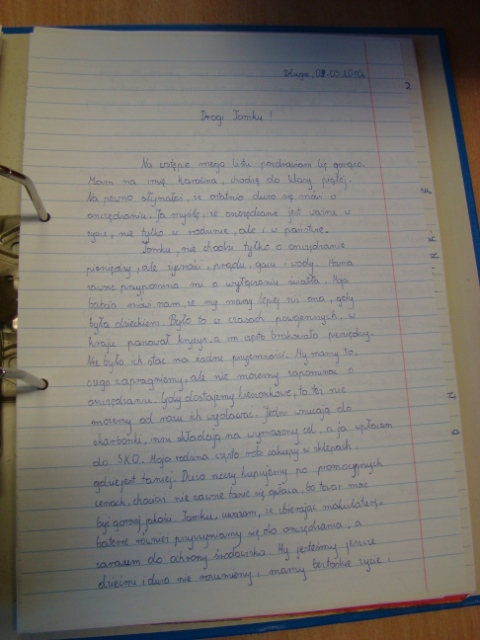 Długa, 01.03.2012
2
Drogi Tomku!
Na wstępie mego listu pozdrawiam Cię gorąco.
Mam na imię Karolina, chodzę do klasy piątej.
Na pewno słyszałeś, że ostatnio dużo się mówi o
oszczędzaniu. Ja myślę, że oszczędzanie jest ważne w
życiu, nie tylko w rodzinie, ale i w państwie.
Tomku, nie chodzi tylko o oszczędzanie
pieniędzy, ale żywności, prądu, gazu i wody. Mama
zawsze przypomina mi o wyłączaniu światła. Moja
babcia mówi nam, że my mamy lepiej niż ona, gdy
była dzieckiem. Było to w czasach powojennych, w
kraju panował kryzys, a im często brakowało pieniędzy.
Nie było ich stać na żadne przyjemności. My mamy to,
czego zapragniemy, ale nie możemy zapominać o
oszczędzaniu. Gdy dostajemy kieszonkowe, to też nie
możemy od razu ich wydawać. Jedni wrzucają do
skarbonki, inni składają na wymarzony cel, a ja wpłacam
do SKO. Moja rodzina często robi zakupy w sklepach
gdzie jest taniej. Dużo rzeczy kupujemy po promocyjnych
cenach, chociaż nie zawsze tanie się opłaca, bo towar może
być gorszej jakości. Tomku, uważam, że zbierając makulaturę,
baterie również przyczyniamy się do oszczędzania, a
zarazem do ochrony środowiska. My jesteśmy jeszcze
dziećmi i dużo nie rozumiemy, mamy beztroskie życie,